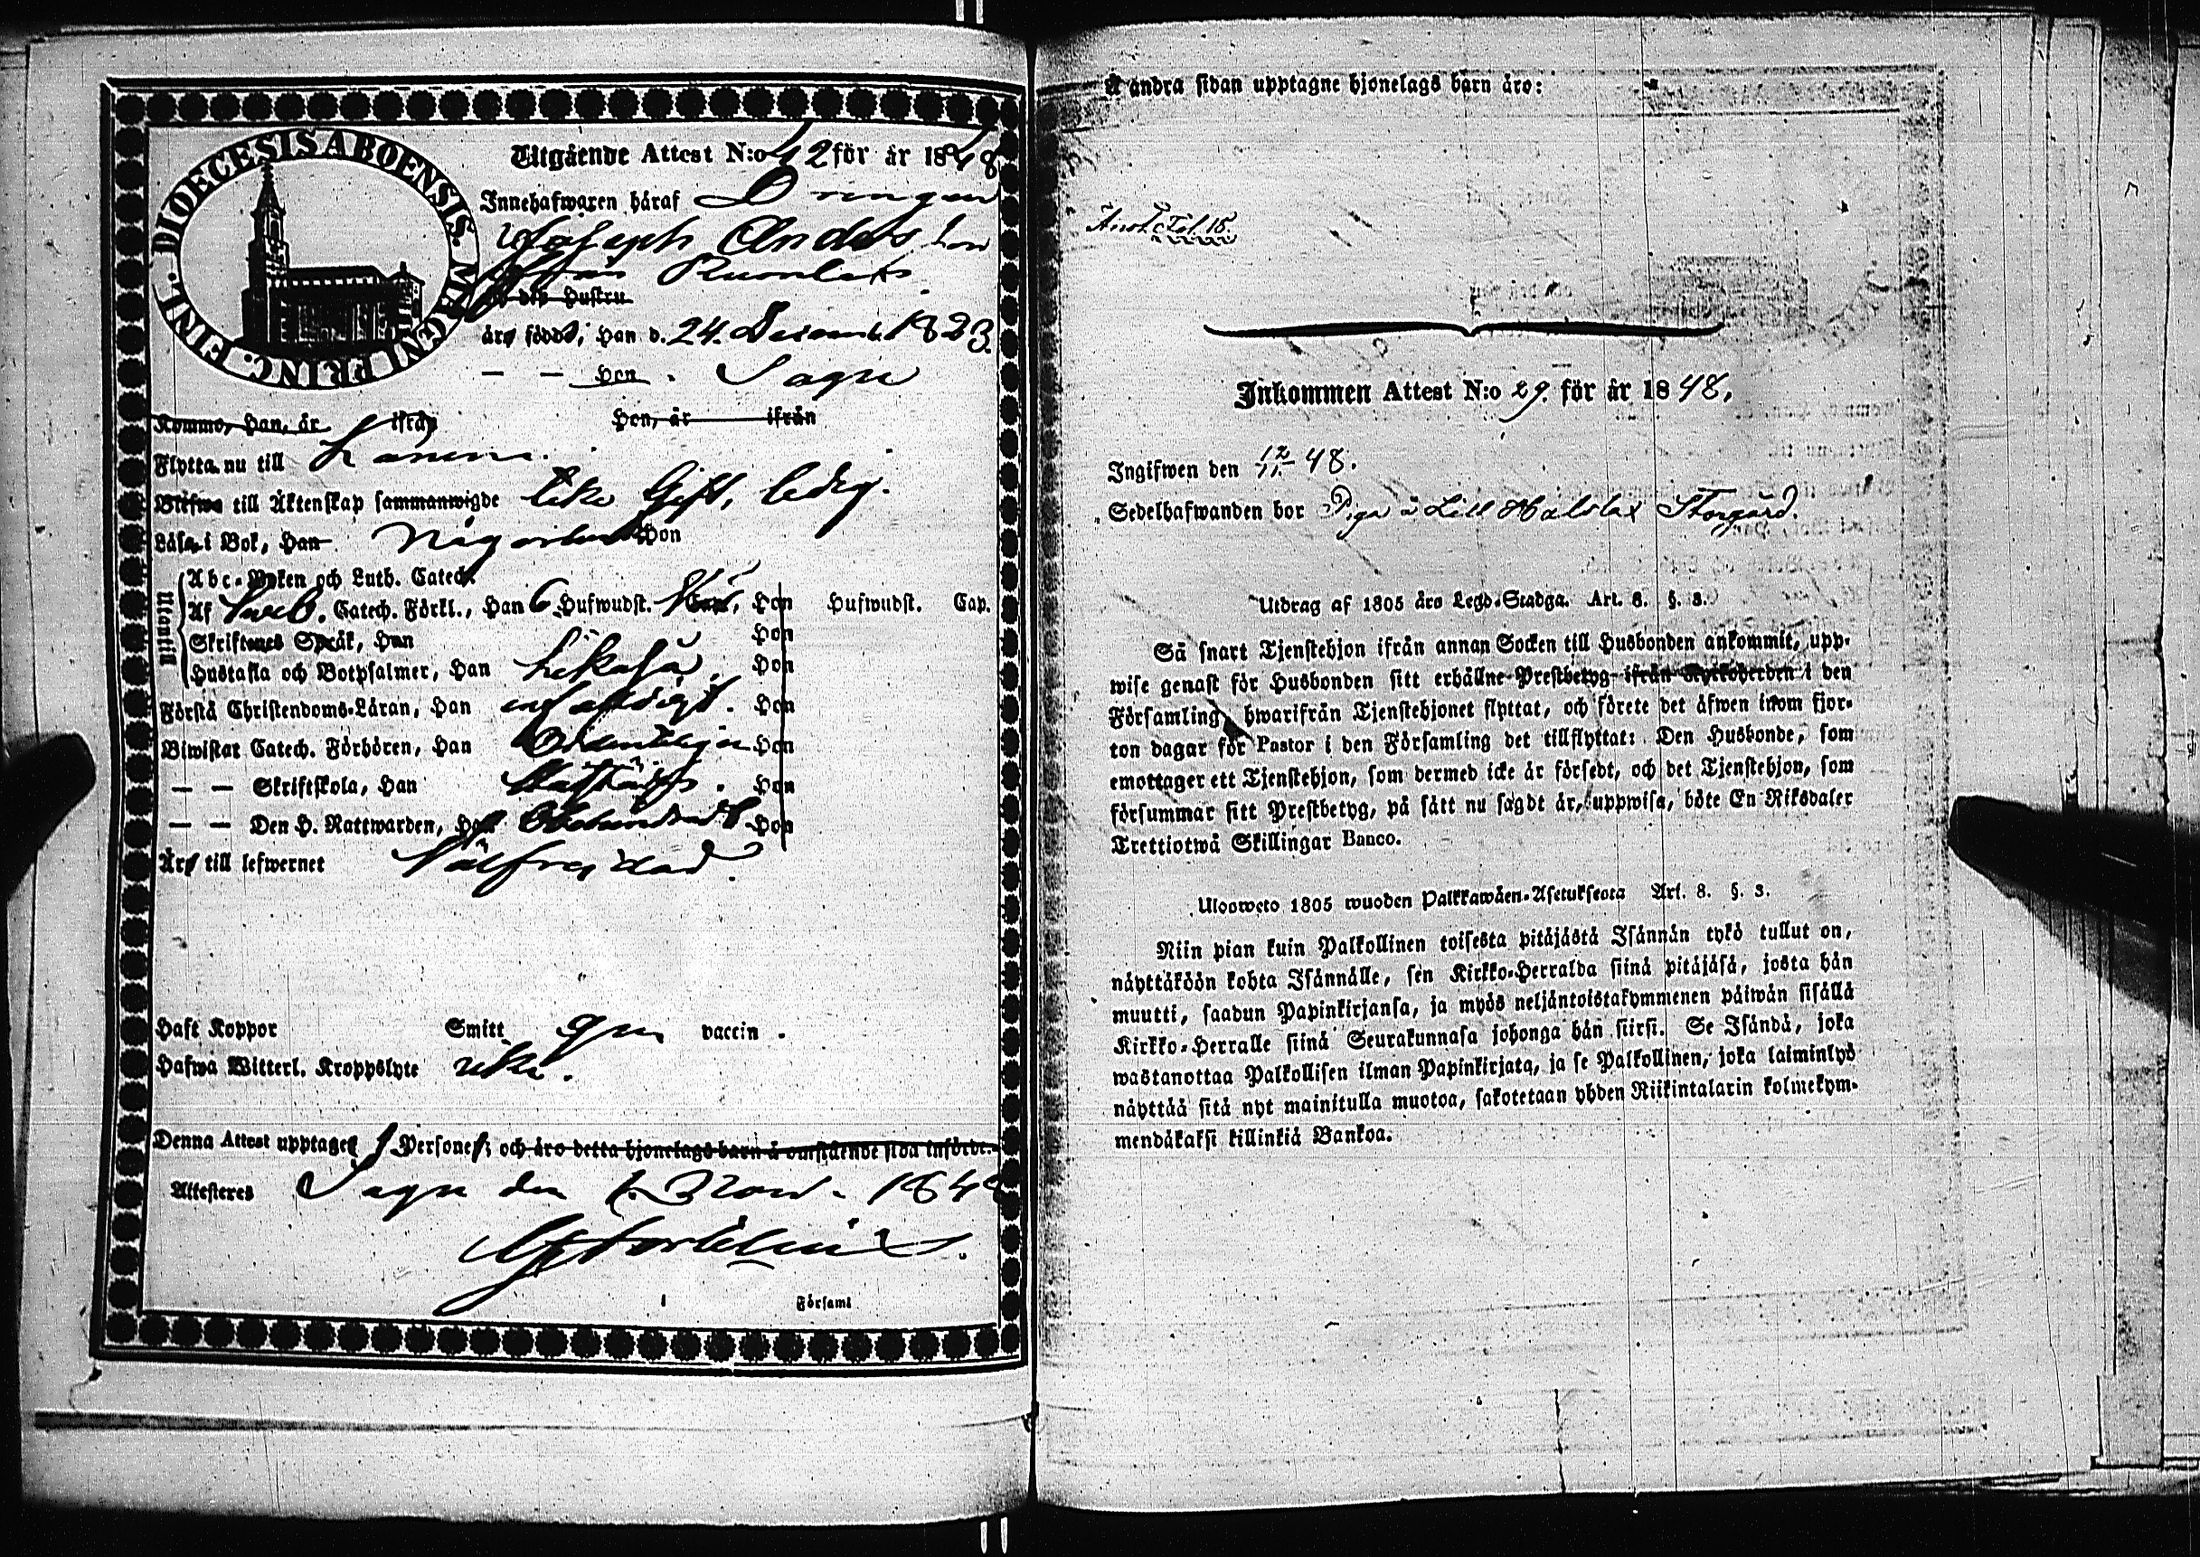 DIOECESIS ABOENSIS. MAGNI PRINC. FINL.
Utgående Attest N:o 42 för år 1848
Innehafwaren häraf Drengen
Joseph Anders son
från
och des Hustru
äro födde, Han d. 24. Decemb. 1823.
— — Hon . Sagu
Komma, Han, år ifrån Hon, år ifrån
Flytta nu till
Blifwa till Äktenskap sammanwigde icke Gift, ledig.
Läsa i Bok, Han Någorlunda Hon
Utantill
Abc-Boken och Luth. Catech.
Af Sveb. Catech. Förkl., Han 6 Hufwudst. Cap., Hon Hufwudst. Cap.
Skriftenes Språk, Han Hon
Hustafla och Botpsalmer, Han likaså Hon
Förstå Christendoms-Läran, Han Hon
Biwistat Catech. Förhören, Han Ordentligen Hon
— — Skriftskola, Han Hon
— — Den H. Nattwarden, Han Hon
Äro till lefwernet Välfrejdad.
Haft Koppor Smitt gm vaccin .
Hafwa Witterl. Kroppslyte icke.
Denna Attest upptager 1 Personer; och äro detta hjonelags barn å omstående sida införde.
Attesteres Sagu den 1. Nov. 1848
Församl
Å andra sidan upptagne hjonelags barn äro:
Fol. 15.
Inkommen Attest N:o 29. för år 1848.
Ingifwen den 12/11 48.
Sedelhafwanden bor Piga å Lill Storgård.
Utdrag af 1805 års Legd-Stadga. Art. 8. §. 3.
Så snart Tjenstehjon ifrån annan Socken till Husbonden ankommit, upp-
wise genast för Husbonden sitt erhållne Prestbetyg ifrån Kyrkoherden i den
Församling, hwarifrån Tjenstehjonet flyttat, och förete det äfwen inom fjor-
ton dagar för Pastor i den Församling det tillflyttat: Den Husbonde, som
emottager ett Tjenstehjon, som dermed icke är försedt, och det Tjenstehjon, som
försummar sitt Prestbetyg, på sätt nu sagdt är, uppwisa, böte En Riksdaler
Trettiotwå Skillingar Banco.
Ulosweto 1805 wuoden Palkkawäen-Asetuksesta Art. 8. §. 3.
Niin pian kuin Palkollinen toisesta pitäjästä Isännän tykö tullut on,
näyttäköön kohta Isännälle, sen Kirkko-Herralda siinä pitäjäsä, josta hän
muutti, saadun Papinkirjansa, ja myös neljäntoistakymmenen päiwän sisällä
Kirkko-Herralle siinä Seurakunnasa johonga hän siirsi. Se Isändä, joka
wastanottaa Palkollisen ilman Papinkirjata, ja se Palkollinen, joka laiminlyö
näyttää sitä nyt mainitulla muotoa, sakotetaan yhden Riikintalarin kolmekym-
mendäkaksi killinkiä Bankoa.